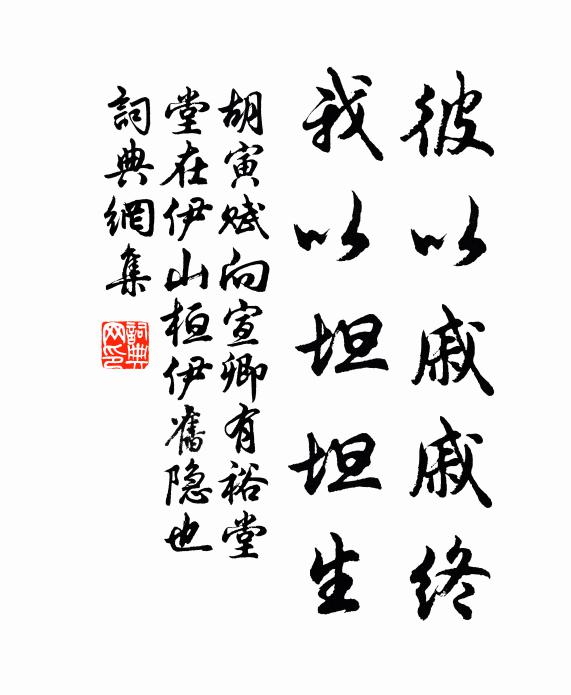 彼以戚戚終
我以坦坦生
胡寅賦向宣卿有裕堂
堂在伊山桓伊舊隐也
詞典網集
詞典网印